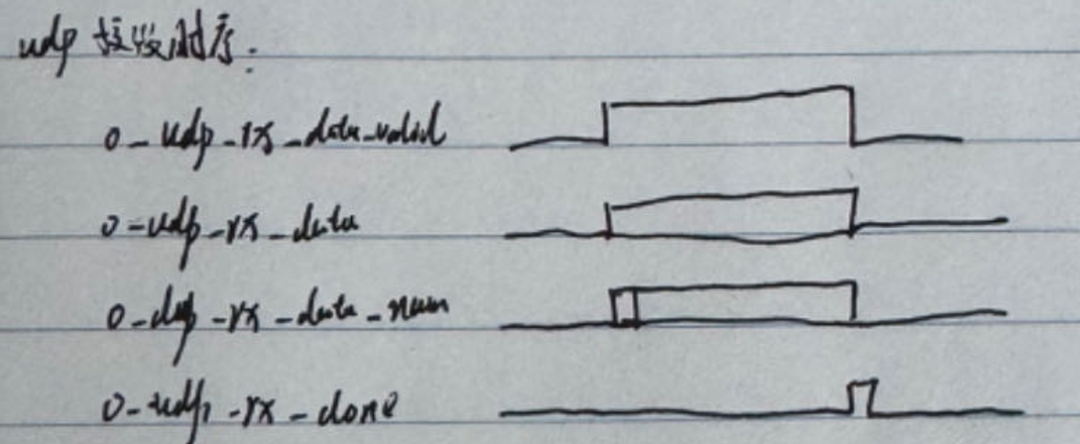 udp 接收时序:
o_udp_rx_data_valid
o_udp_rx_data
o_dup_rx_data_num
o_udp_rx_done